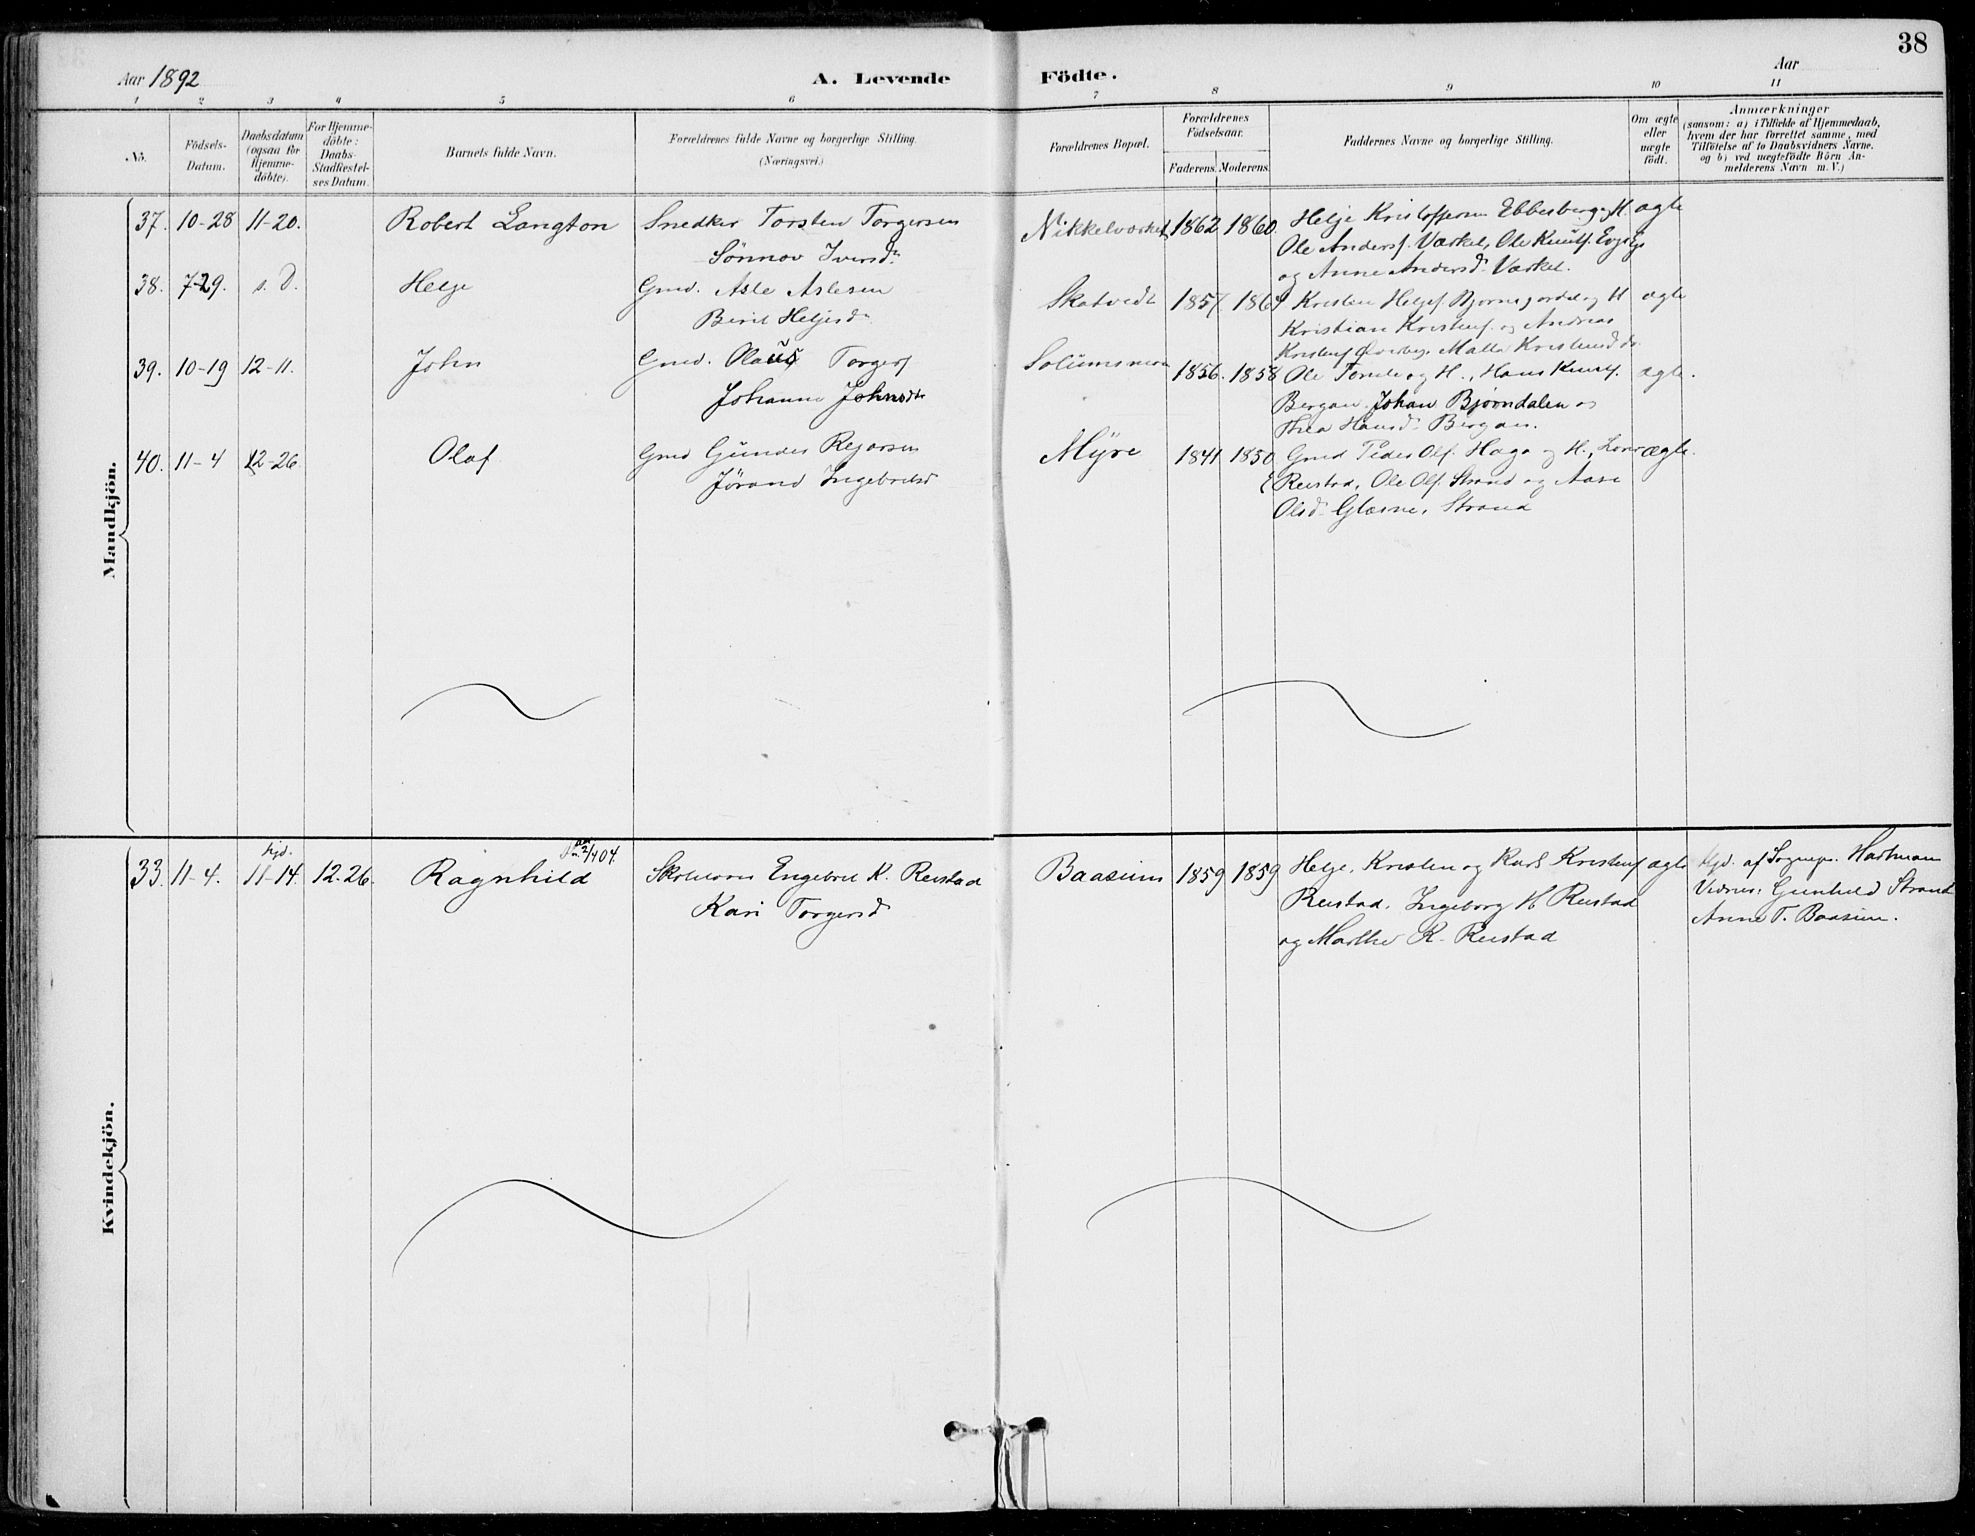 38
Aar 1892
A. Levende Födte.
Aar
1 2 3 4 5 6 7 8 9 10 11
No.
Födsels-Datum.
Daabsdatum (ogsaa for Hjemmedöbte).
For Hjemmedöbte: Daabs-Stadfæstelses Datum.
Barnets fulde Navn.
Forældrenes fulde Navne og borgerlige Stilling.
(Næringsvei.)
Forældrenes Bopæl.
Forældrenes Födselsaar.
Faderens. Moderens.
Faddernes Navne og borgerlige Stilling.
Om ægte eller uægte födt.
Anmærkninger
(saasom: a) i Tilfælde af Hjemmedaab, hvem der har forrettet samme, med Tilföielse af to Daabsvidners Navne, og b) ved uægtefödte Börn Anmelderens Navn m. V.)
Mandkjön.
37. 10-28 11-20. Robert Langton Snedker Torsten Torgersen Nikkelværket 1862 1860. Helje Kristoffersen Ebbesberg og H. ægte
Sönnov Iversd. Ole Andersf. Værket, Ole Knutf.
og Anne Andersd. Værket.
38. 7-29. s. D. Helje Gmd. Asle Aslesen Skatvedt 1857 1864 Kristen Heljef. Bjørnsgordal og H ægte
Berit Heljesd. Kristian Kristenf. og Andreas
Kristenf Øverby, Malla Kristensd
39. 10-19 12-11. John Gmd. Olaus Torgersf Solumsmoen 1856. 1858 Ole og H., Hans Knutf. ægte.
Johanne Johnsdtr Bergan. Johan Bjørndalen og
Thea Hansd. Bergan.
40. 11-4 12-26. Olaf Gmd Gunder Rejorsen Myre 1841 1850 Gmd Peder Olf. Haga og H., ægte.
Jörand Ingebretsd Reistad, Ole Olf. Strand og Aase
Olsd. Glasne, Strand
Kvindekjön.
33. 11-4. hjd. 11-14. 12.26. Ragnhild 2/4 04. Engebret K. Reistad Baasum 1859 1859 Helje, Kristen og Karl Kristenf ægte Hjd. af Sognepr. Hartman
Kari Torgersd Reistad. Ingeborg H Reistad Vidner: Gunhild Strand
og Marthe K. Reistad Anne T. Baasum.